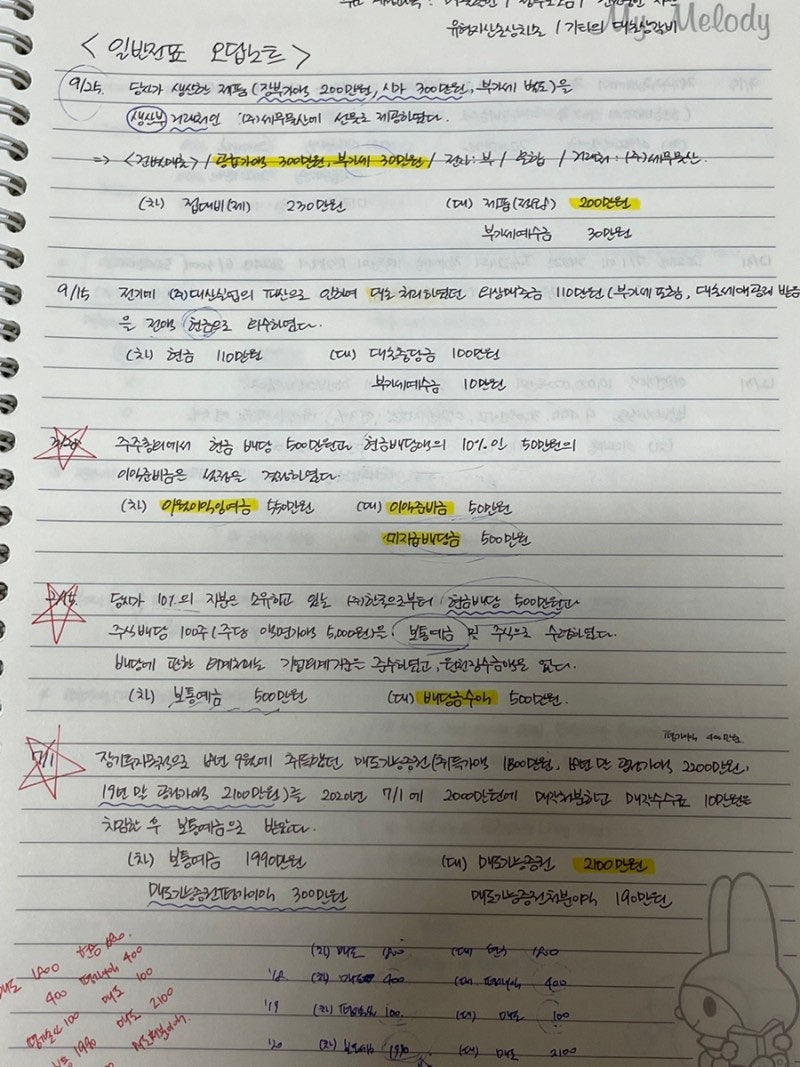 유형자산손상차손 / 기타의 대손상각비
My Melody
< 일반전표 오답노트 >
9/25. 당사가 생산한 제품 (장부가액 200만원, 시가 300만원, 부가세 별도)을
생산부 거래처인 (주)세무물산에 선물로 제공하였다.
=> <건별매출> / 공급가액 300만원, 부가세 30만원 / 전자: 부 / 혼합 / 거래처: (주)세무물산.
(차) 접대비(제) 230만원 (대) 제품(적요8) 200만원
부가세예수금 30만원
9/15 전기에 (주)대산실업의 파산으로 인하여 대손 처리하였던 외상매출금 110만원 (부가세 포함, 대손세액공제 받음)
을 전액 현금으로 회수하였다.
(차) 현금 110만원 (대) 대손충당금 100만원
부가세예수금 10만원
주주총회에서 현금 배당 500만원과 현금배당액의 10%인 50만원의
이익준비금 설정을 결정하였다.
(차) 이월이익잉여금 550만원 (대) 이익준비금 50만원
미지급배당금 500만원
당사가 10%의 지분을 소유하고 있는 (주)한국으로부터 현금배당 500만원과
주식배당 100주 (주당 액면가액 5,000원)을 보통예금 및 주식으로 수령하였다.
배당에 관한 회계처리는 기업회계기준을 준수하였고, 원천징수금액은 없다.
(차) 보통예금 500만원 (대) 배당금수익 500만원.
평가이익 400만원
7/1 장기투자목적으로 18년 9월에 취득했던 매도가능증권 (취득가액 1800만원, 18년 말 공정가액 2200만원,
19년 말 공정가액 2100만원)을 2020년 7/1에 2000만원에 매각처분하고 매각수수료 10만원을
차감한 후 보통예금으로 받았다.
(차) 보통예금 1990만원 (대) 매도가능증권 2100만원
매도가능증권평가이익 300만원 매도가능증권처분이익 190만원
(차) 매도 1800 (대) 현금 1800
'18 (차) 매도 400 (대) 평가이익 400
'19 (차) 평가손실 100 (대) 매도 100
'20 (차) 보통예금 1990 (대) 매도 2100
매도 1800
400 평가이익 400
100 매도 100
1990 매도 2100